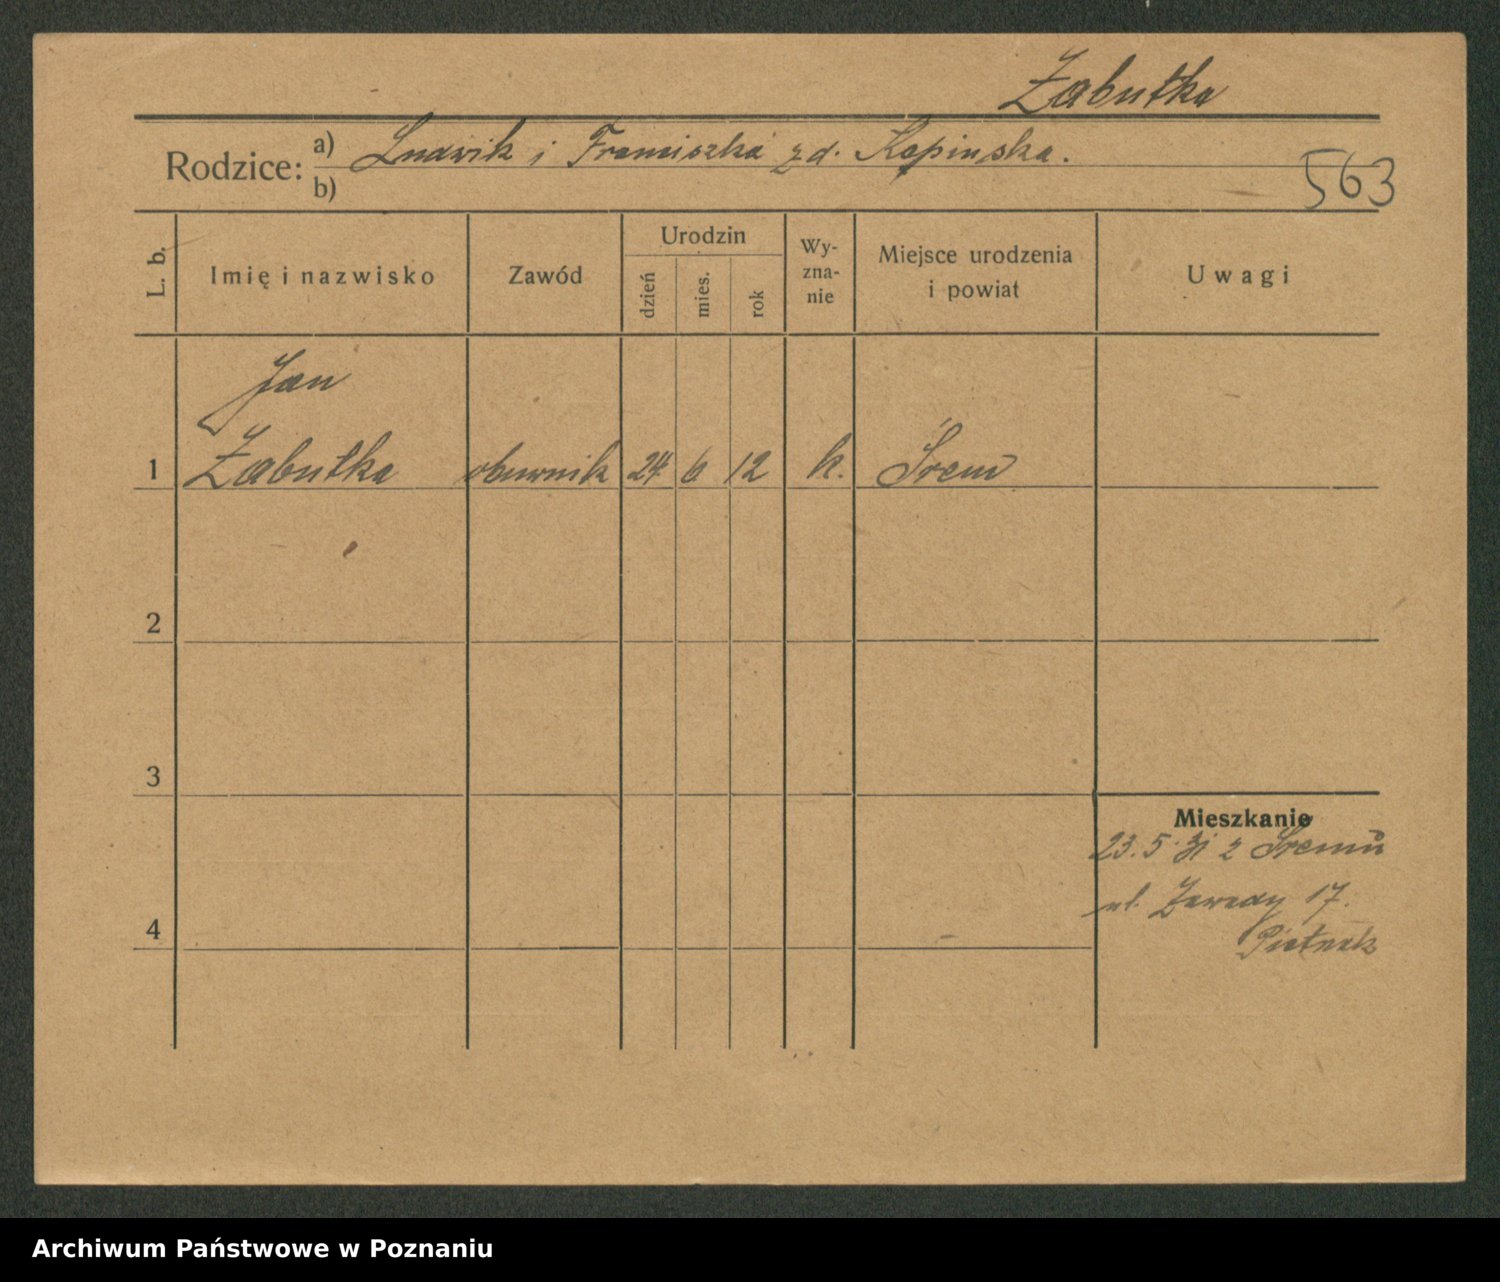 Żabutka
Rodzice: a) Ludwik i Franciszka zd. Kopinska.
b)
563
L. b.
Imię i nazwisko
Zawód
Urodzin
dzień
mies.
rok
Wy-
zna-
nie
Miejsce urodzenia
i powiat
Uwagi
Jan
1 Żabutka obuwnik 24 6 12 k. Śrem
2
3
4
Mieszkanie
23. 5. 31 z Śremu
ul. 17.
Archiwum Państwowe w Poznaniu